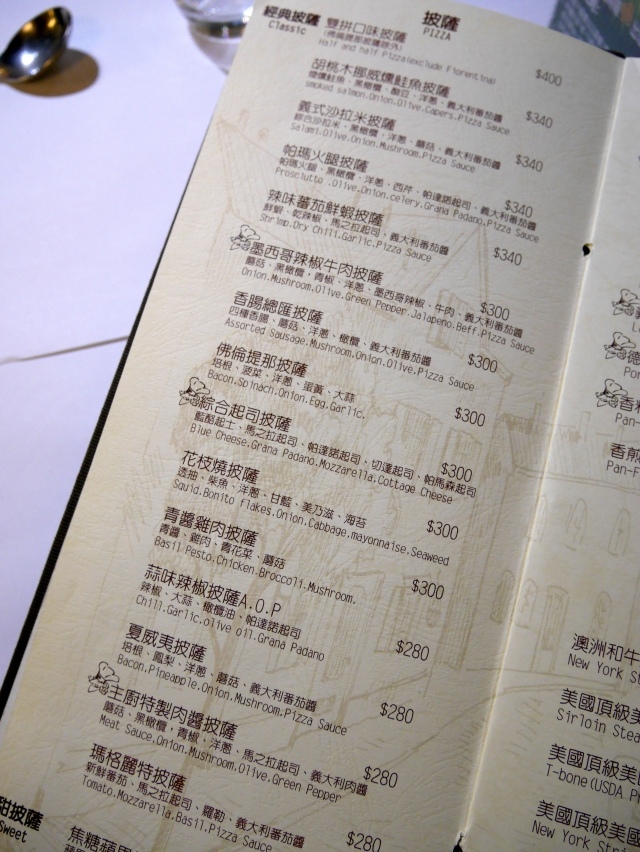 披薩
PIZZA
經典披薩
Classic
雙拼口味披薩
(佛倫提那披薩除外)
Half and half Pizza(exclude Fiorentina)
$400
胡桃木挪威燻鮭魚披薩
煙燻鮭魚、黑橄欖、酸豆、洋蔥、義大利番茄醬
smoked salmon.Onion.Olive.Capers.Pizza Sauce
$340
義式沙拉米披薩
綜合沙拉米、黑橄欖、洋蔥、蘑菇、義大利番茄醬
Salami.Olive.Onion.Mushroom.Pizza Sauce
$340
帕瑪火腿披薩
帕瑪火腿、黑橄欖、洋蔥、西芹、帕達諾起司、義大利番茄醬
Prosciutto .Olive.Onion.celery.Grana Padano.Pizza Sauce
$340
辣味蕃茄鮮蝦披薩
鮮蝦、乾辣椒、馬之拉起司、義大利番茄醬
Shrimp.Dry Chill.Garlic.Pizza Sauce
$340
墨西哥辣椒牛肉披薩
蘑菇、黑橄欖，青椒、洋蔥、墨西哥辣椒、牛肉、義大利番茄醬
Onion.Mushroom.Olive.Green Pepper.Jalapeno.Beff.Pizza Sauce
$300
香腸總匯披薩
四種香腸、蘑菇、洋蔥、橄欖、義大利番茄醬
Assorted Sausage.Mushroom.Onion.Olive.Pizza Sauce
$300
佛倫提那披薩
培根、菠菜、洋蔥、蛋黃、大蒜
Bacon.Spinach.Onion.Egg.Garlic.
$300
綜合起司披薩
藍酪起士、馬之拉起司、帕達諾起司、切達起司、帕馬森起司
Blue Cheese.Grana Padano.Mozzarella.Cottage Cheese
$300
花枝燒披薩
透抽、柴魚、洋蔥、甘藍、美乃滋、海苔
Squid.Bonito Flakes.Onion.Cabbage.mayonnaise.Seaweed
$300
青醬雞肉披薩
青醬、雞肉、青花菜、蘑菇
Basil Pesto.Chicken.Broccoli.Mushroom.
$300
蒜味辣椒披薩A.O.P
辣椒、大蒜、橄欖油、帕達諾起司
Chill.Garlic.olive oil.Grana Padano
$280
夏威夷披薩
培根、鳳梨、洋蔥、蘑菇、義大利番茄醬
Bacon.Pineapple.Onion.Mushroom.Pizza Sauce
$280
主廚特製肉醬披薩
蘑菇、黑橄欖，青椒、洋蔥、馬之拉起司、義大利肉醬
Meat Sauce.Onion.Mushroom.Olive.Green Pepper
$280
瑪格麗特披薩
新鮮番茄、馬之拉起司、羅勒、義大利番茄醬
Tomato.Mozzarella.Basil.Pizza Sauce
$280
甜披薩
Sweet
焦糖蘋果
德
Por
香料
Pan-
香煎
Pan-F
澳洲和牛
New York St
美國頂級美
Sirloin Stea
美國頂級美
T-bone(USDA Pr
美國頂級美
New York Stri